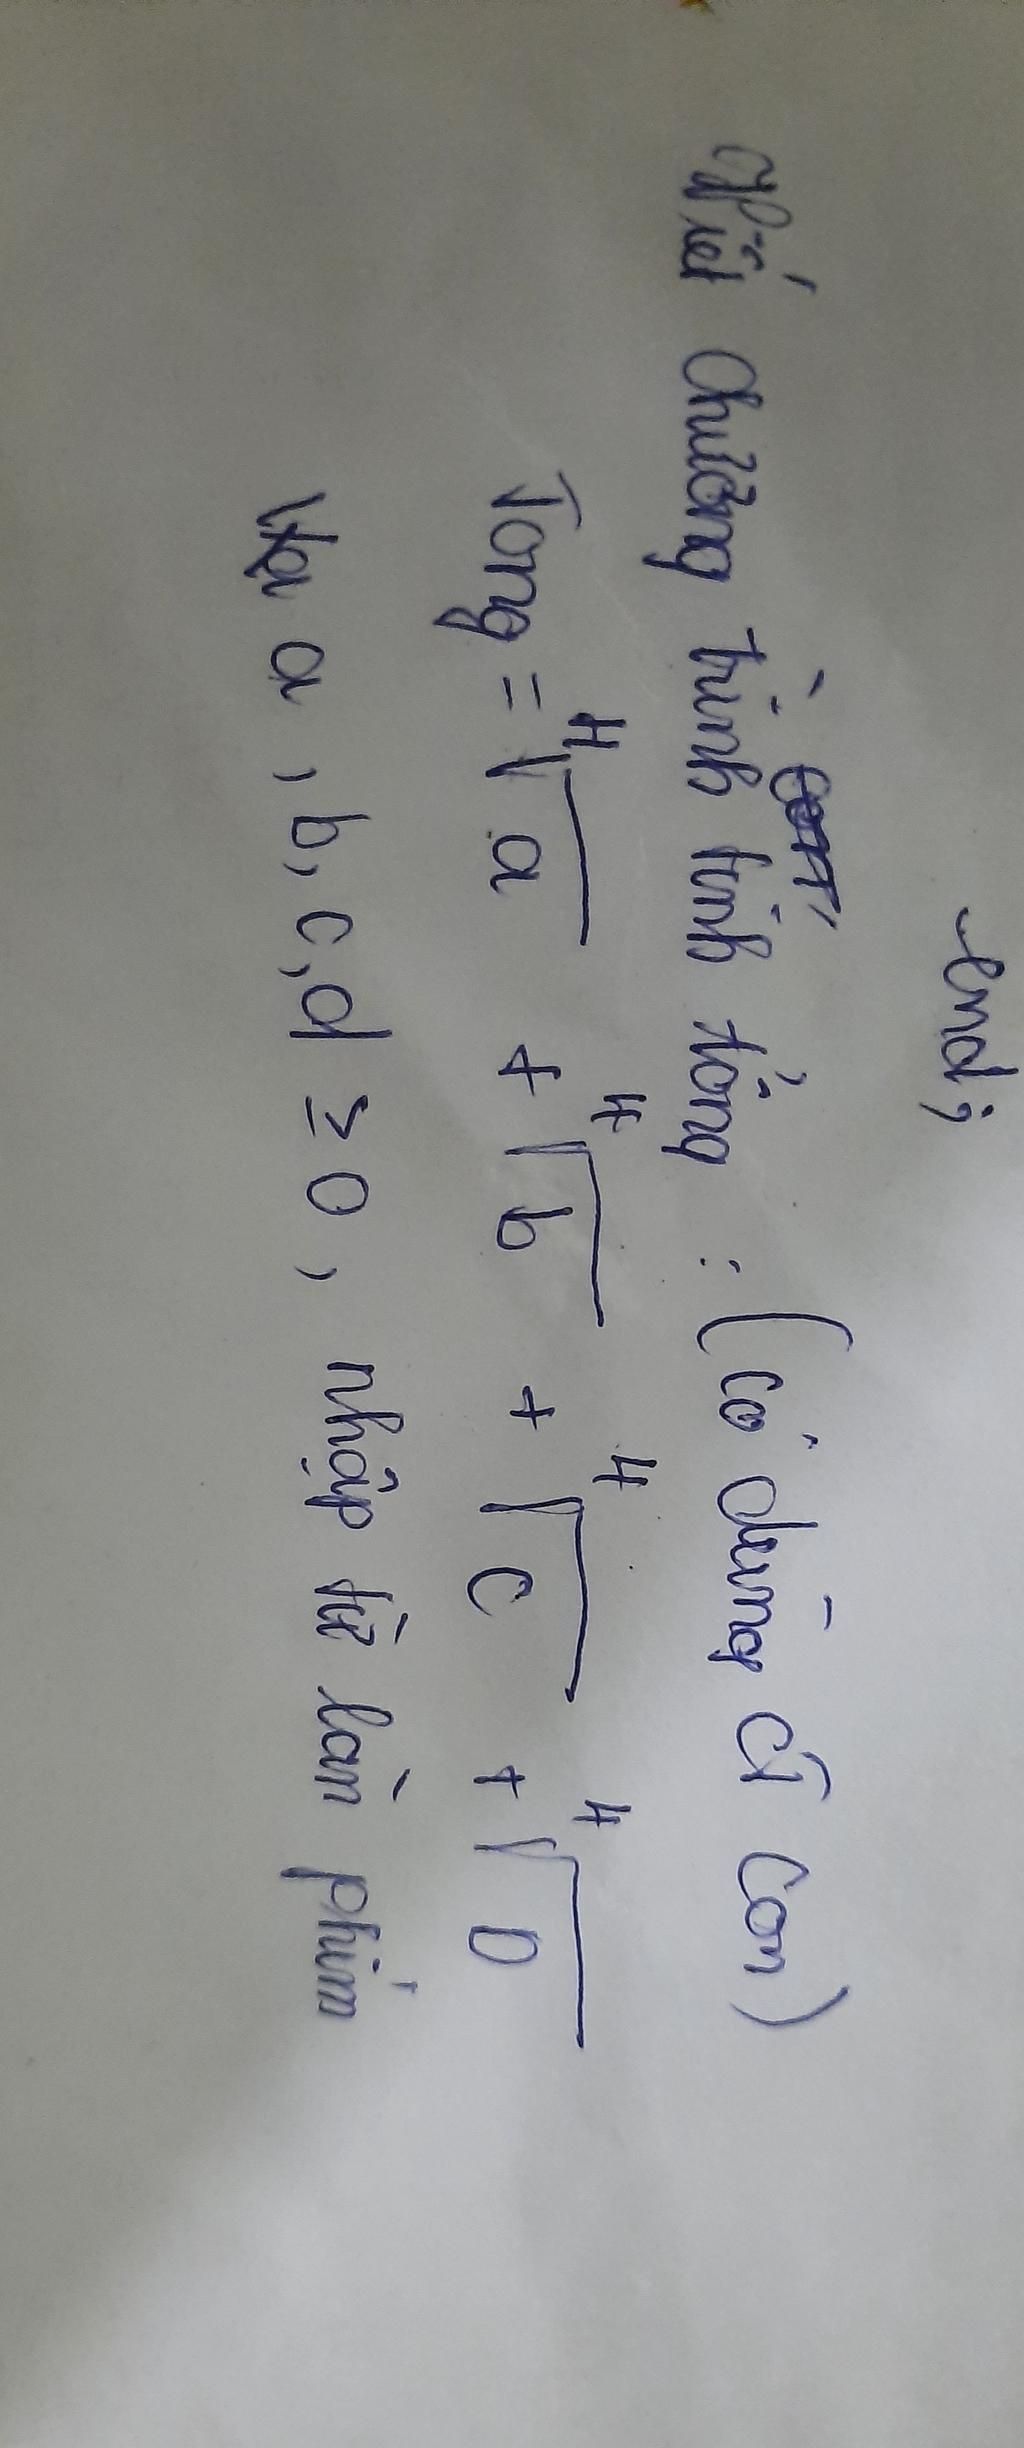 end;
Viết chương trình tính tổng : (có dùng CT con)
Tong = ⁴√a + ⁴√b + ⁴√c + ⁴√D
a, b, c, d ≥ 0, nhập từ bàn phím